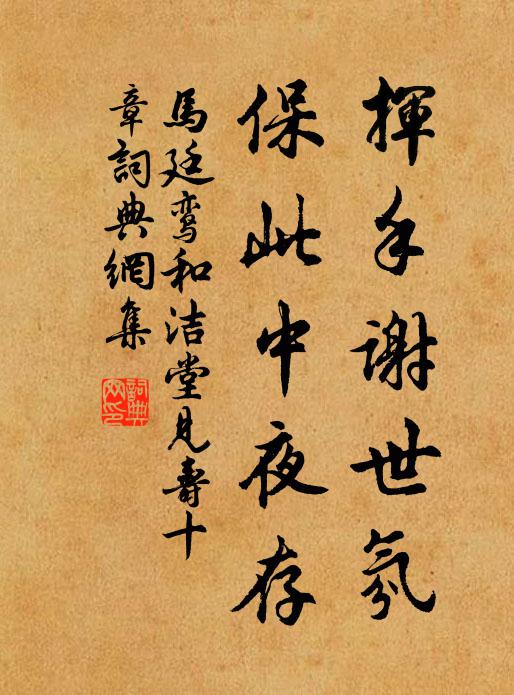 揮手謝世氛
保此中夜存
馬廷鸾和洁堂見壽十
章詞典網集
詞典
网印